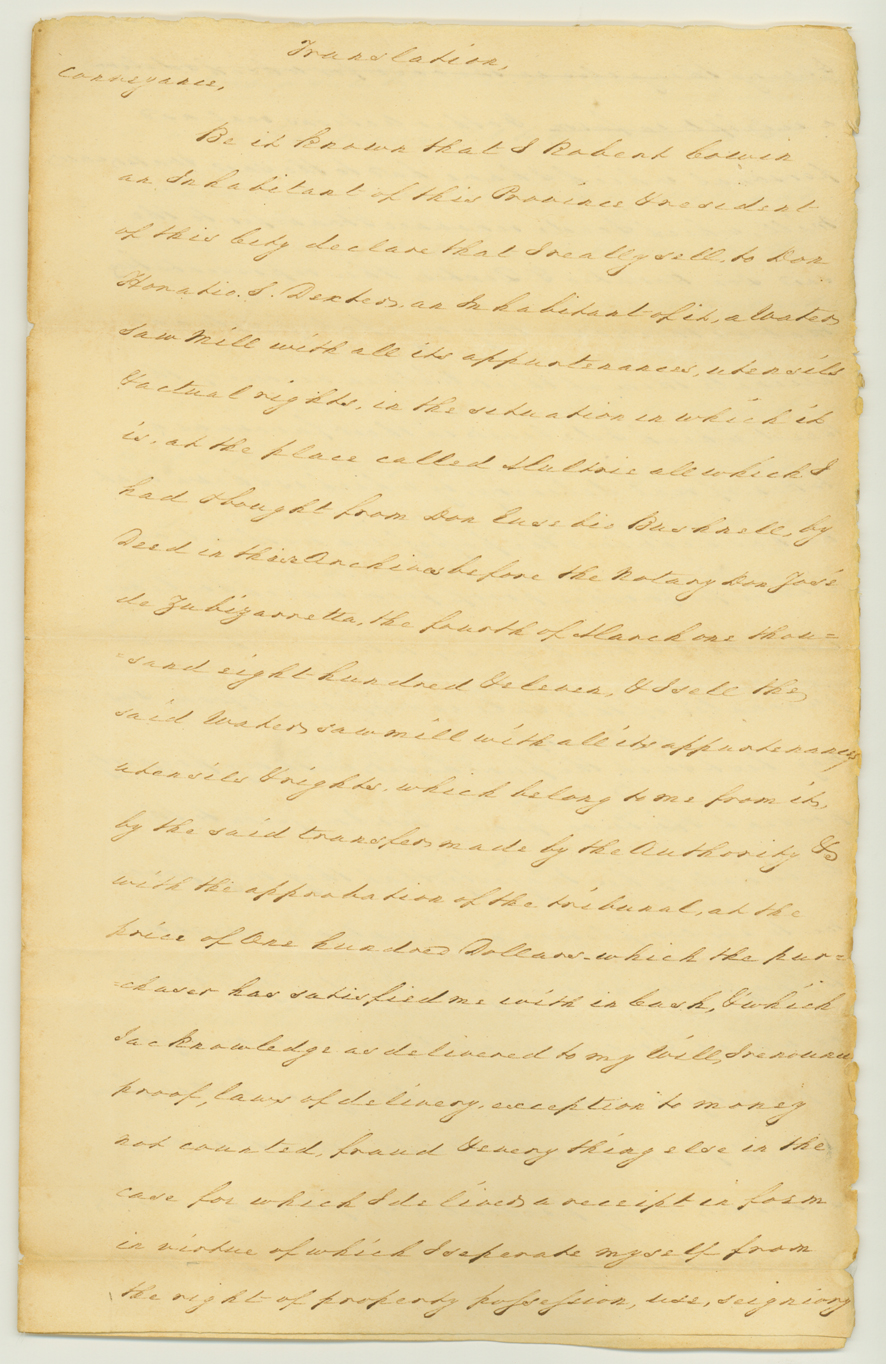 Translation,
Conveyance,
Be it known that I Robert Cowin
an Inhabitant of this Province & resident
of this City declare that I really sell, to Don
Horatio. S. Dexter, an Inhabitant of it, a Water
saw Mill with all its appurtenances, utensils
& actual rights, in the situation in which it
is, at the place called Multrie all which I
had & bought from Don Eusebio Bushnell, by
Deed in these Archives before the Notary Don José
de Zubizarretta, the fourth of March one thou=
=sand eight hundred & eleven, & I sell the
said Water saw mill with all its appurtenances
utensils & rights, which belong to me from it,
by the said transfer made by the Authority &
with the approbation of the tribunal, at the
price of One hundred Dollars - which the pur=
=chaser has satisfied me with in Cash, & which
I acknowledge as delivered to my Will, I renounce
proof, laws of delivery, exception to money
not counted, fraud & every thing else in the
case for which I deliver a receipt in form
in virtue of which I seperate myself from
the right of property possession, use, seigniory